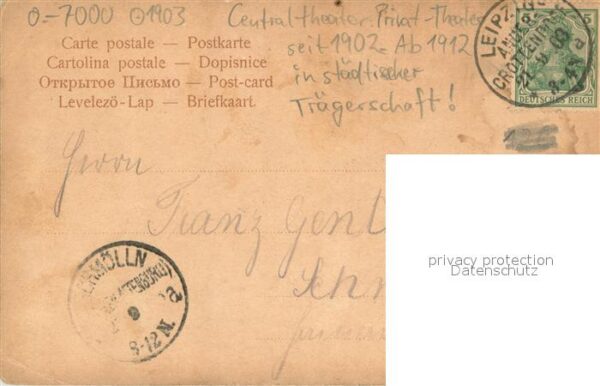 0-7000 01903 Centraltheater. Privat-Theater
seit 1902. Ab 1912
in städtischer
Trägerschaft!
Carte postale — Postkarte
Cartolina postale — Dopisnice
Открытое Письмо — Post-card
Levelező-Lap — Briefkaart.
LEIPZIG
5
DEUTSCHES REICH
Herrn
Franz Gent
privacy protection
Datenschutz
MÖLLN
8-12 N.